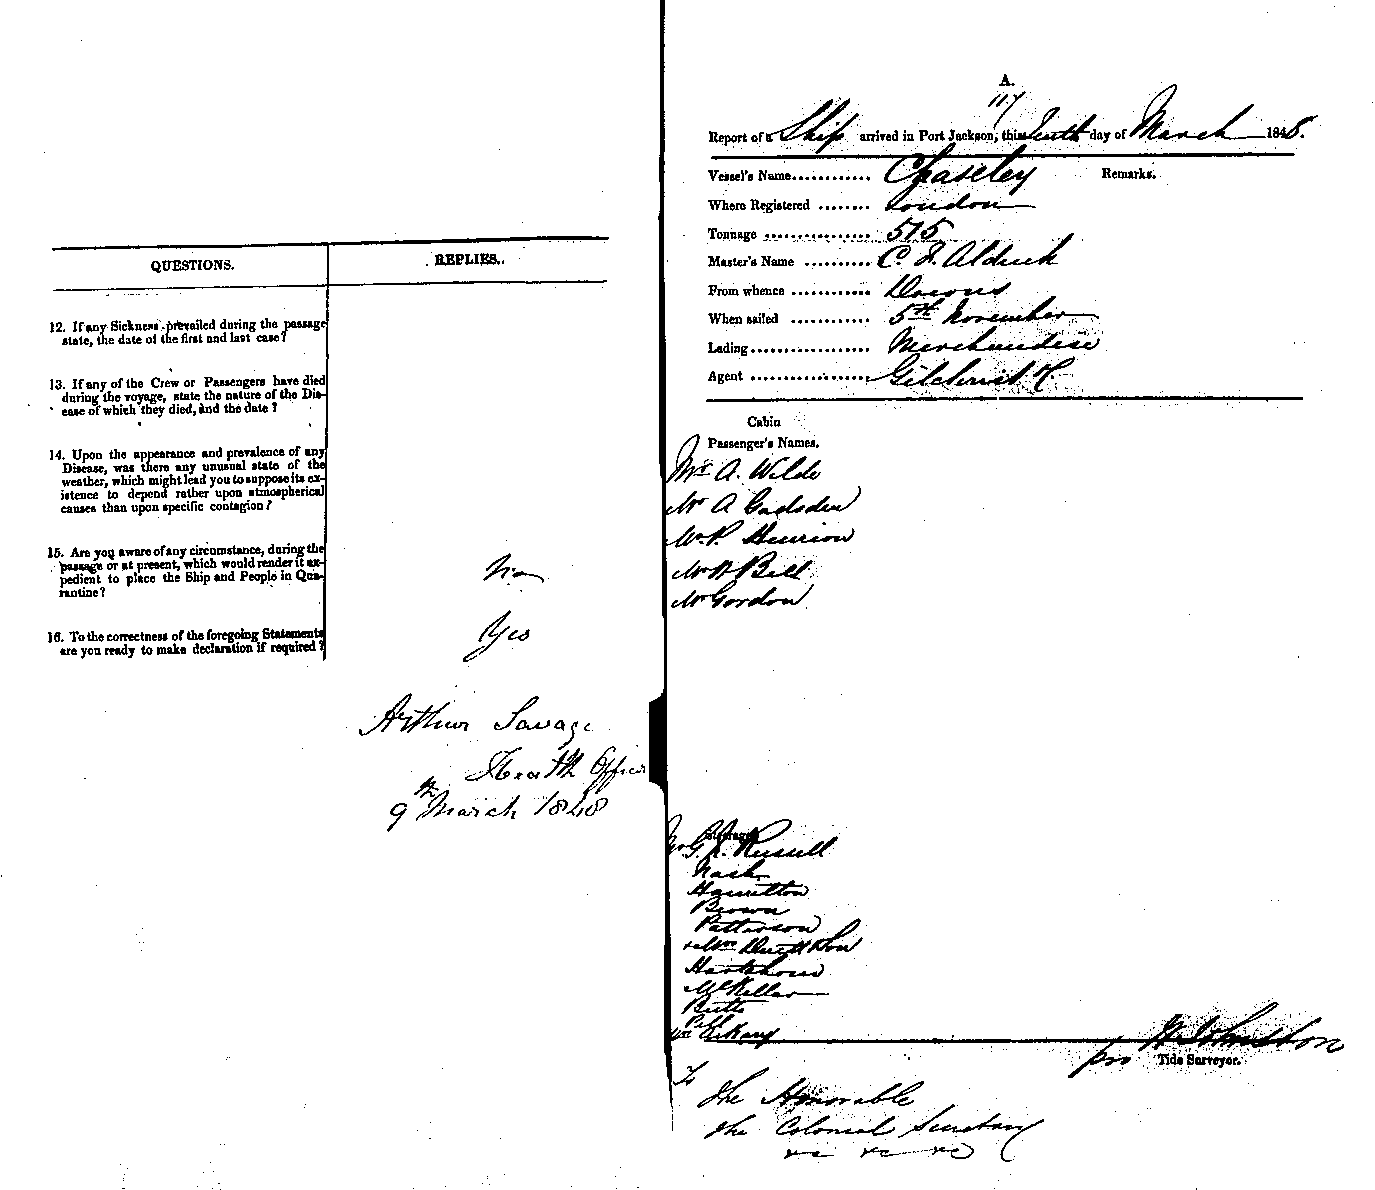 QUESTIONS.
REPLIES.
12. If any Sickness prevailed during the passage
state, the date of the first and last case?
13. If any of the Crew or Passengers have died
during the voyage, state the nature of the Dis-
ease of which they died, and the date?
14. Upon the appearance and prevalence of any
Disease, was there any unusual state of the
weather, which might lead you to suppose its ex-
istence to depend rather upon atmospherical
causes than upon specific contagion?
15. Are you aware of any circumstance, during the
passage or at present, which would render it ex-
pedient to place the Ship and People in Qua-
rantine?
No
16. To the correctness of the foregoing Statements
are you ready to make declaration if required?
Yes
Arthur Savage
Health Officer
9th March 1848
A.
117
Report of a Ship arrived in Port Jackson, this tenth day of March 1848.
Vessel's Name............ Chaseley
Remarks.
Where Registered ........ London
Tonnage ................ 515
Master's Name .......... C. F. Aldrich
From whence ............ Downs
When sailed ............ 5th November
Lading.................. Merchandise
Agent .................. Gilchrist
Cabin
Passenger's Names.
Mr A. Wilde
Mr A Gadsden
Mr P. Henrion
Mr W Bell
Mr Gordon
Steerage
Mr G. R. Russell
Nash
Hamilton
Brown
Patterson
Son
McKellar
Butts
H Johnston
pro Tide Surveyor.
To
The Honorable
the Colonial Secretary
&c &c &c